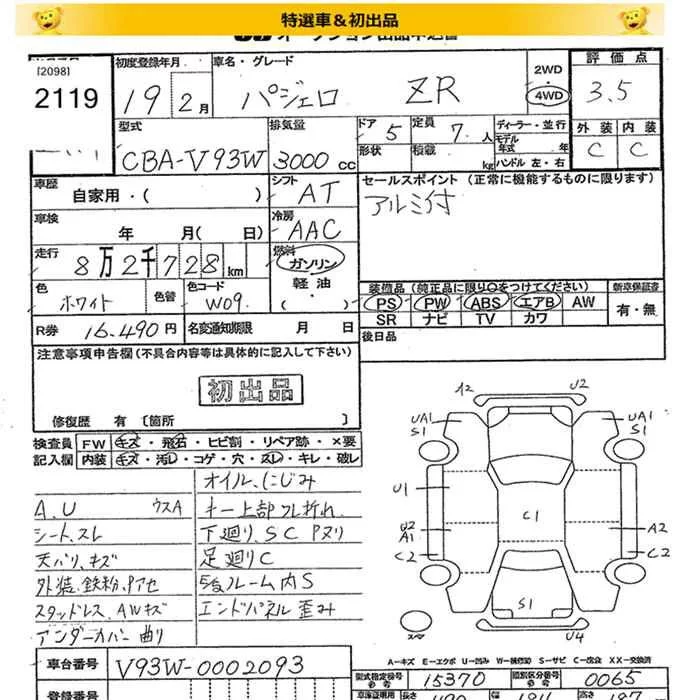 特選車&初出品
[2098]
2119
初度登録年月
19 2月
車名・グレード
パジェロ ZR
2WD
4WD
評価点
3.5
型式
CBA-V93W
排気量
3000 cc
ドア 5
定員 7 人
形状
積載 kg
ディーラー・並行
モデル年式 年
ハンドル 左・右
外装 内装
C C
車歴
自家用・( )
シフト
AT
セールスポイント (正常に機能するものに限ります)
アルミ付
車検
年 月( 日)
冷房
AAC
走行
8万2千728km
燃料
ガソリン
軽油
( )
色
ホワイト
色替
色コード
W09.
装備品 (純正品に限り○をつけてください)
新車保証書
PS PW ABS エアB AW
SR ナビ TV カワ
有・無
R券 16.490円
名変通知期限 月 日
後日品
注意事項申告欄(不具合内容等は具体的に記入して下さい)
初出品
修復歴 有 [箇所 ]
検査員
記入欄
FW キズ・飛石・ヒビ割・リペア跡・×要
内装 キズ・汚レ・コゲ・穴・スレ・キレ・破レ
A.U ウスA
シート、スレ
天バリ、キズ
外装、鉄粉、Pアセ
スタッドレス、AWキズ
アンダーカバー曲り
オイル、にじみ
キー上部ツレ折れ
下廻り、SC Pヌリ
足廻りC
フレーム内S
エンドパネル歪み
A2 U2
UA1
S1
UA1
S1
U1
C1
U2
A1
A2
C2
C2
S1
U4
スペ
A-キズ E-エクボ U-凹み W-補修跡 S-サビ C-腐食 X X-交換済
車台番号
V93W-0002093
型式指定番号
参考
15370
類別区分番号
参考
0065
登録番号